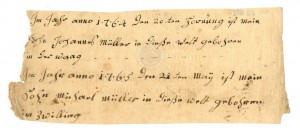 Im Jahr anno 1764 den 20 ten Hornung ist mein
Sohn Johannes Müller in diese Welt gebohren
in der waag
Im Jahr anno 1765 den 24 ten May ist mein
Sohn Michael müller in diese welt gebohren
im Zwilling